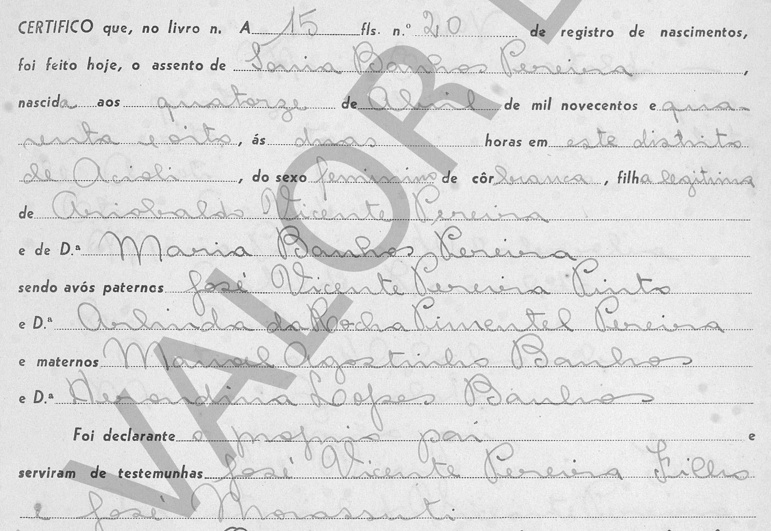 CERTIFICO que, no livro n. A 15 fls. n.º 20 de registro de nascimentos,
foi feito hoje, o assento de Sonia Banhos Pereira,
nascida aos quatorze de Abril de mil novecentos e qua-
renta e oito, ás duas horas em este distrito
de Acioli, do sexo feminino de côr branca, filha legitima
de Ariobaldo Vicente Pereira
e de D.ª Maria Banhos Pereira
sendo avós paternos José Vicente Pereira Pinto
e D.ª Arlinda da Rocha Pimentel Pereira
e maternos Manoel Agostinho Banhos
e D.ª Lopes Banhos
Foi declarante o proprio pai e
serviram de testemunhas José Vicente Pereira Filho
e José Morossuti
VALOR